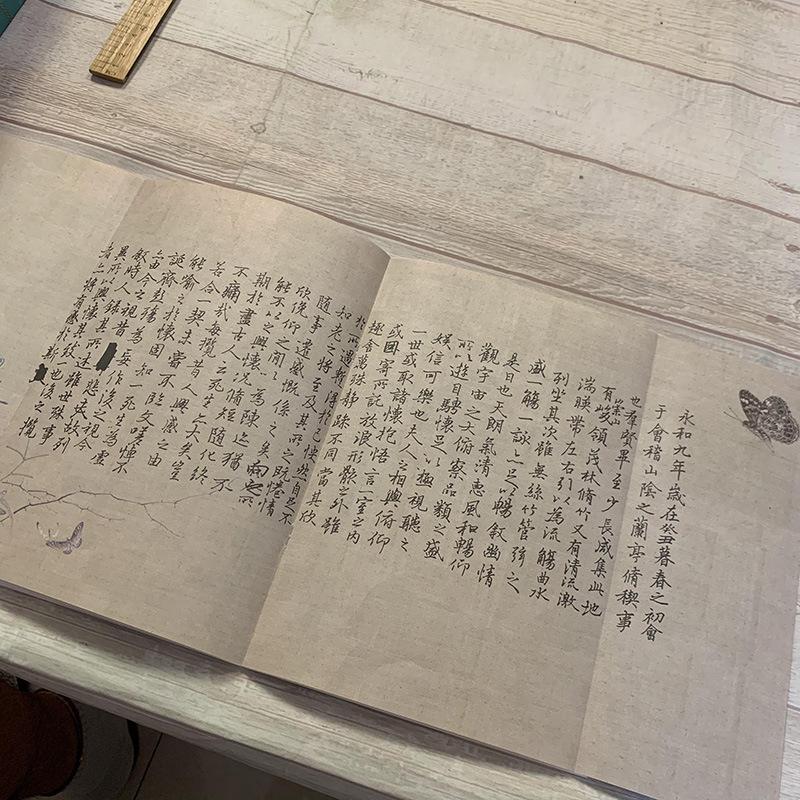 永和九年歲在癸丑暮春之初會
于會稽山陰之蘭亭脩稧事
也羣賢畢至少長咸集此地
有崇山峻領茂林脩竹又有清流激
湍暎帶左右引以為流觴曲水
列坐其次雖無絲竹管弦之
盛一觴一詠亦足以暢敘幽情
是日也天朗氣清惠風和暢仰
觀宇宙之大俯察品類之盛
所以遊目騁懷足以極視聽之
娛信可樂也夫人之相與俯仰
一世或取諸懷抱悟言一室之內
或因寄所託放浪形骸之外雖
趣舍萬殊靜躁不同當其欣
於所遇暫得於己快然自足不
知老之將至及其所之既惓情
隨事遷感慨係之矣向之所
欣俛仰之間以為陳迹猶不
能不以之興懷況脩短隨化終
期於盡古人云死生亦大矣豈
不痛哉每攬昔人興感之由
若合一契未嘗不臨文嗟悼不
能喻之於懷固知一死生為虛
誕齊彭殤為妄作後之視今
亦由今之視昔悲夫故列
敘時人錄其所述雖世殊事
異所以興懷其致一也後之攬
者亦將有感於斯